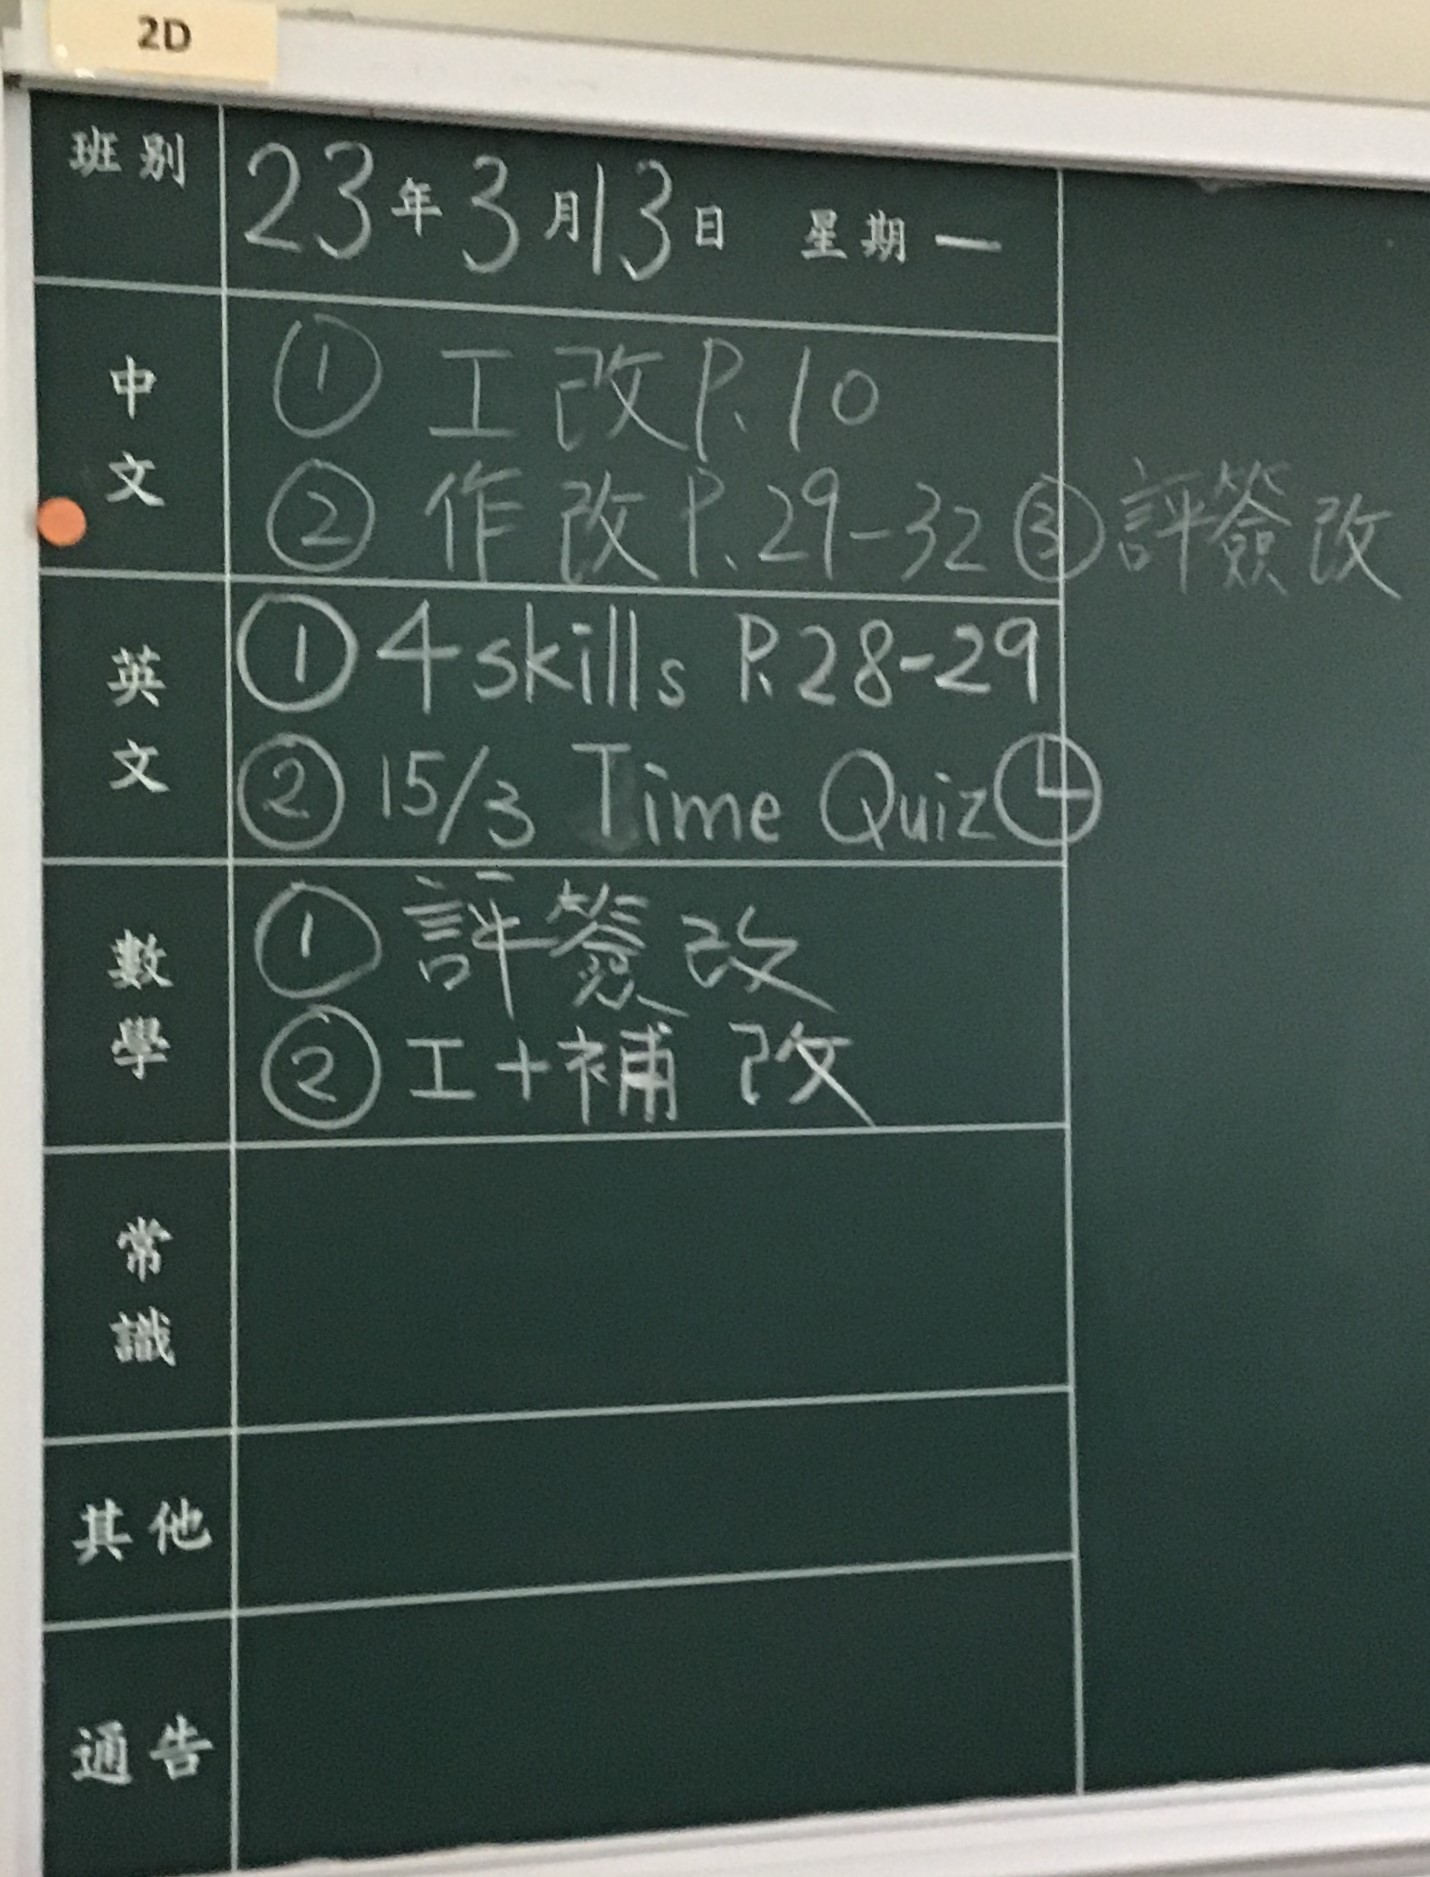 2D
班別 23年3月13日 星期一
中文
① 工改P.10
② 作改P.29-32 ③評簽改
英文
① 4 skills P.28-29
② 15/3 Time Quiz
數學
① 評簽改
② 工+補改
常識
其他
通告